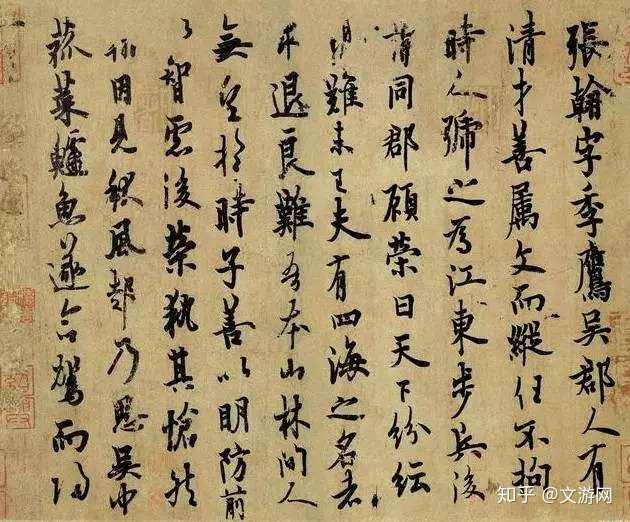 張翰字季鷹吳郡人有
清才善屬文而縱任不拘
時人號之為江東步兵後
謂同郡顧榮曰天下紛紜
禍難未已夫有四海之名者
求退良難吾本山林間人
無望於時子善以明防前
以智慮後榮執其愴然
翰因見秋風起乃思吳中
菰菜鱸魚遂命駕而歸
知乎 @文游网